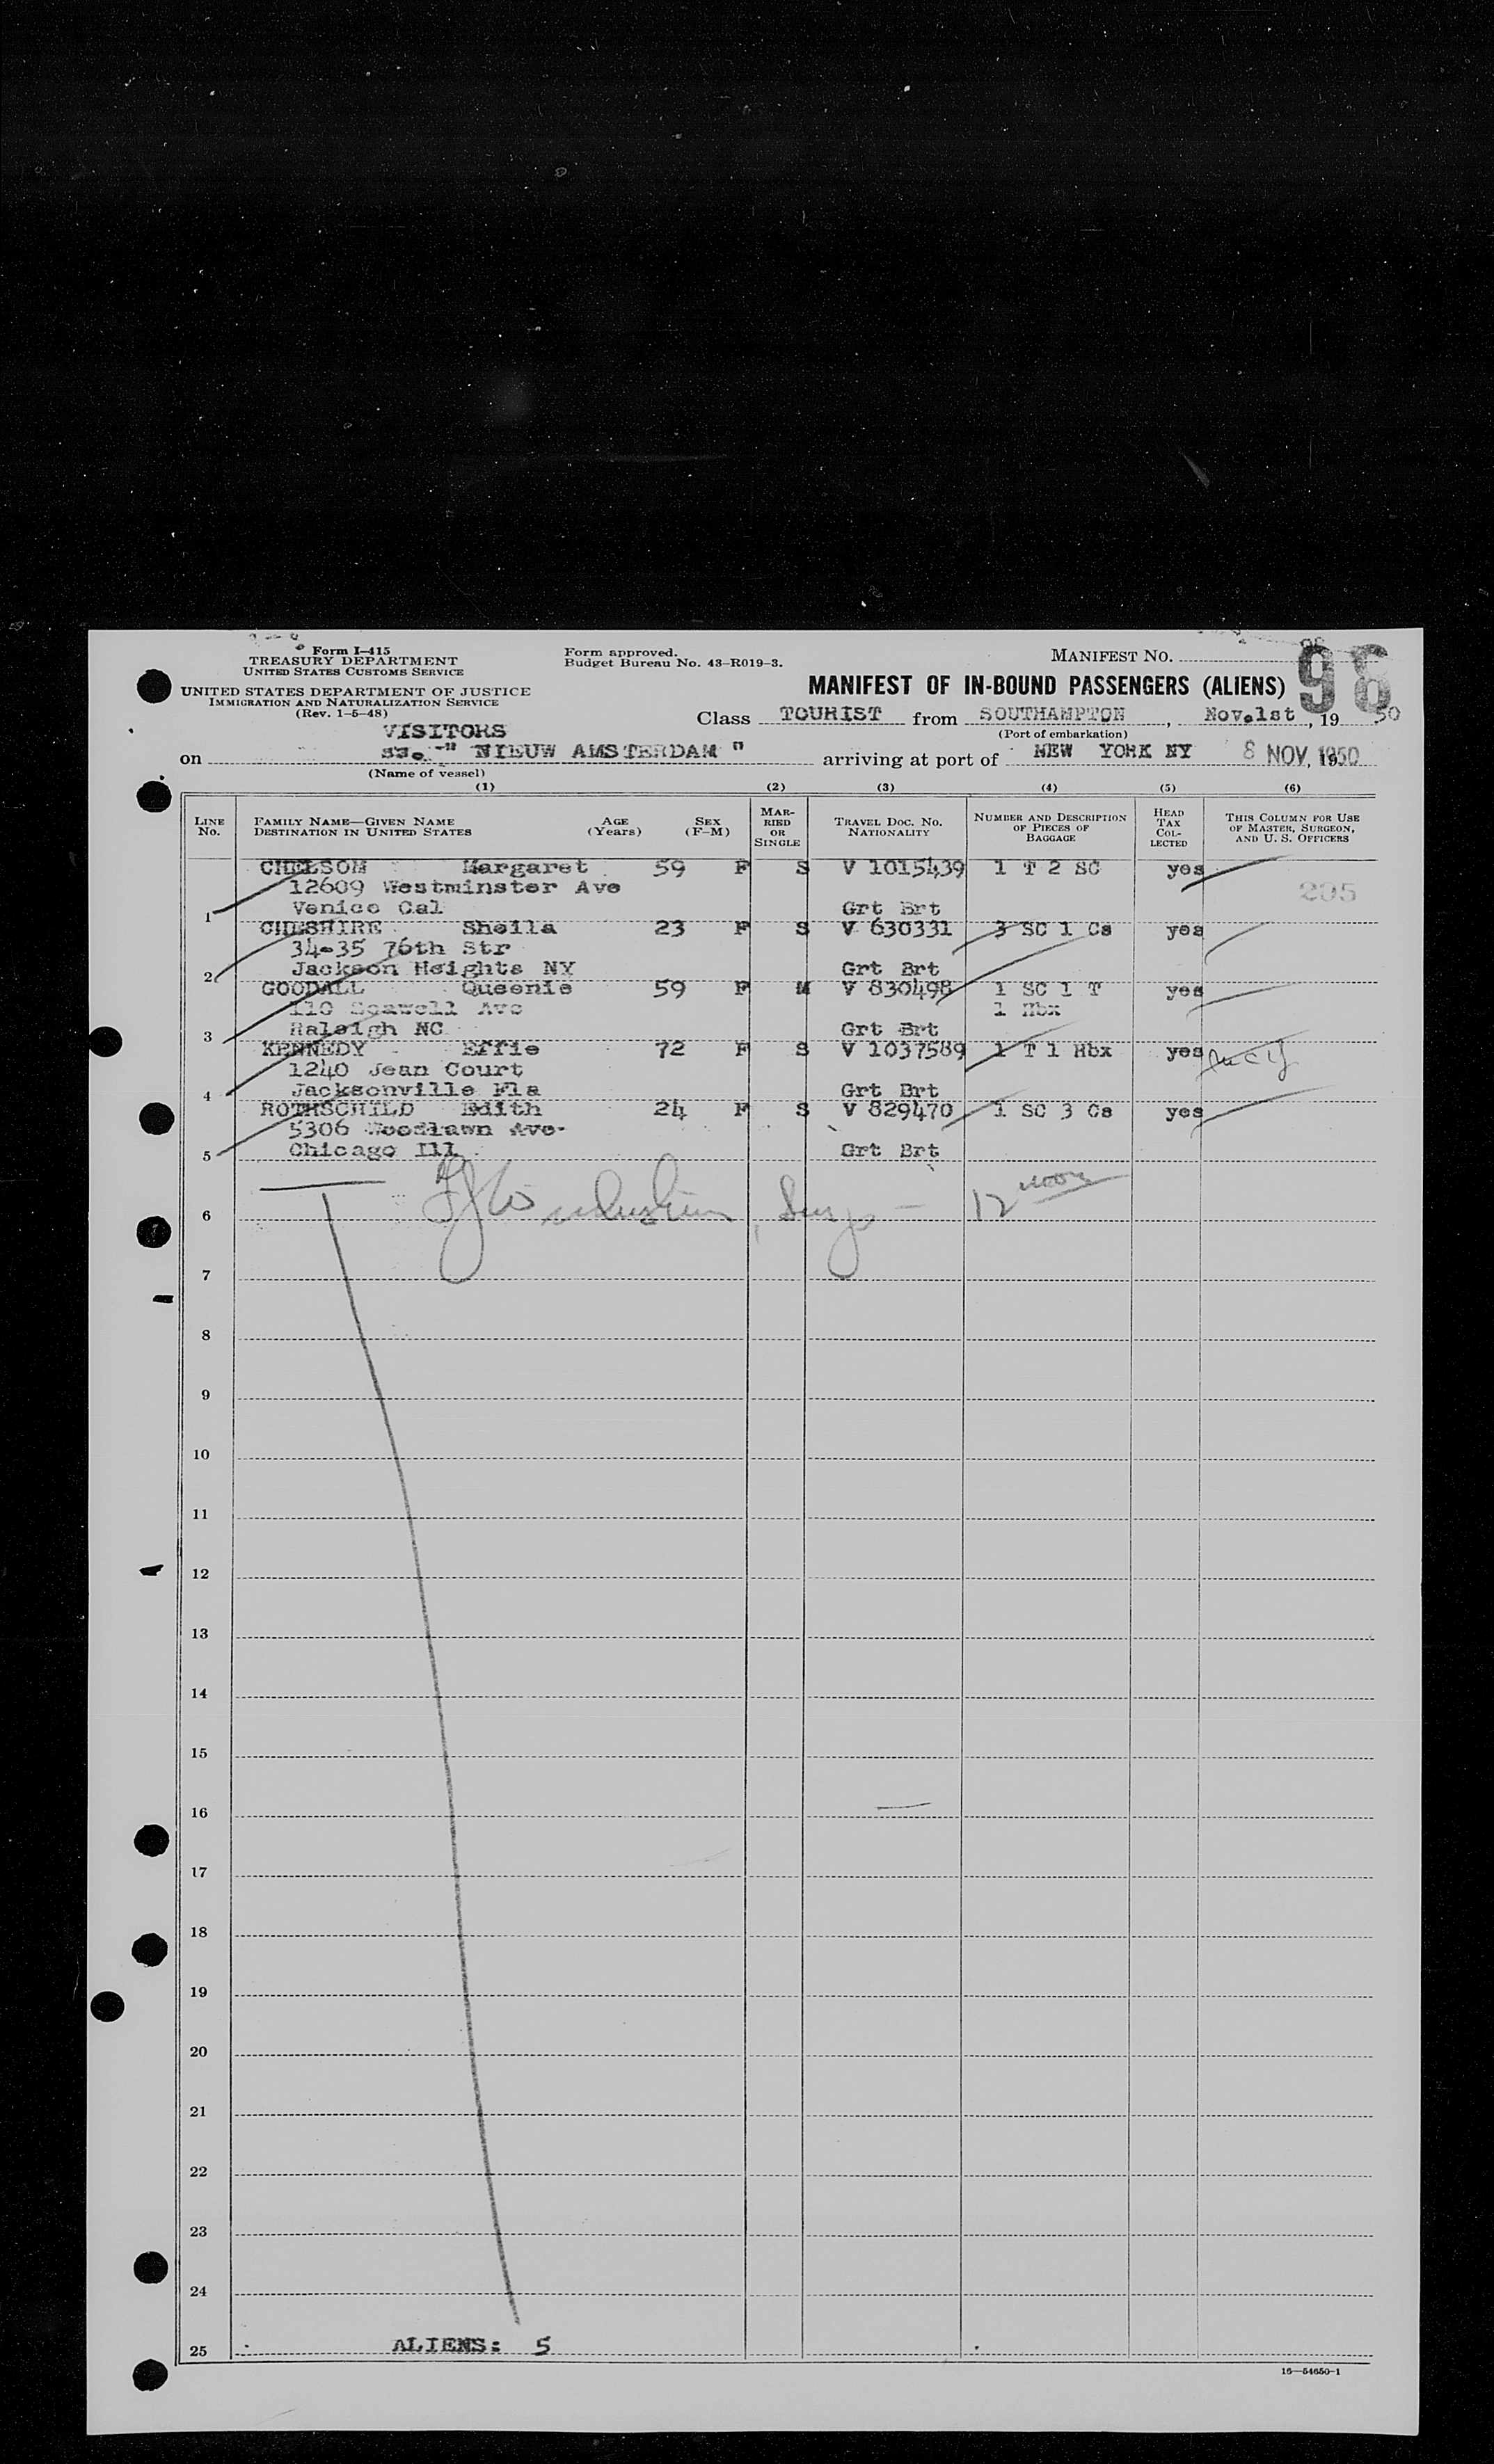 Form I-415
TREASURY DEPARTMENT
UNITED STATES CUSTOMS SERVICE
UNITED STATES DEPARTMENT OF JUSTICE
IMMIGRATION AND NATURALIZATION SERVICE
(Rev. 1-5-48)
Form approved.
Budget Bureau No. 43-R019-3.
MANIFEST NO. 98
MANIFEST OF IN-BOUND PASSENGERS (ALIENS)
VISITORS
Class TOURIST from SOUTHAMPTON, Nov.1st, 19 50
(Port of embarkation)
on ss. " NIEUW AMSTERDAM " arriving at port of NEW YORK NY 8 NOV, 1950
(Name of vessel)
(1) (2) (3) (4) (5) (6)
LINE No. FAMILY NAME—GIVEN NAME DESTINATION IN UNITED STATES AGE (Years) SEX (F-M) MARRIED OR SINGLE TRAVEL DOC. NO. NATIONALITY NUMBER AND DESCRIPTION OF PIECES OF BAGGAGE HEAD TAX COLLECTED THIS COLUMN FOR USE OF MASTER, SURGEON, AND U. S. OFFICERS
CHELSOM Margaret 59 F S V 1015439 1 T 2 SC yes
12609 Westminster Ave 205
1 Venice Cal Grt Brt
CHESHIRE Sheila 23 F S V 630331 3 SC 1 Cs yes
34-35 76th Str
2 Jackson Heights NY Grt Brt
GOODALL Queenie 59 F M V 830498 1 SC 1 T yes
110 Seawell Ave 1 Hbx
3 Raleigh NC Grt Brt
KENNEDY Effie 72 F S V 1037589 1 T 1 Hbx yes
1240 Jean Court
4 Jacksonville Fla Grt Brt
ROTHSCHILD Edith 24 F S V 829470 1 SC 3 Cs yes
5306 Woodlawn Ave.
5 Chicago Ill Grt Brt
6 Surg 12 noon
7
8
9
10
11
12
13
14
15
16
17
18
19
20
21
22
23
24
25 ALIENS: 5
16—54650-1